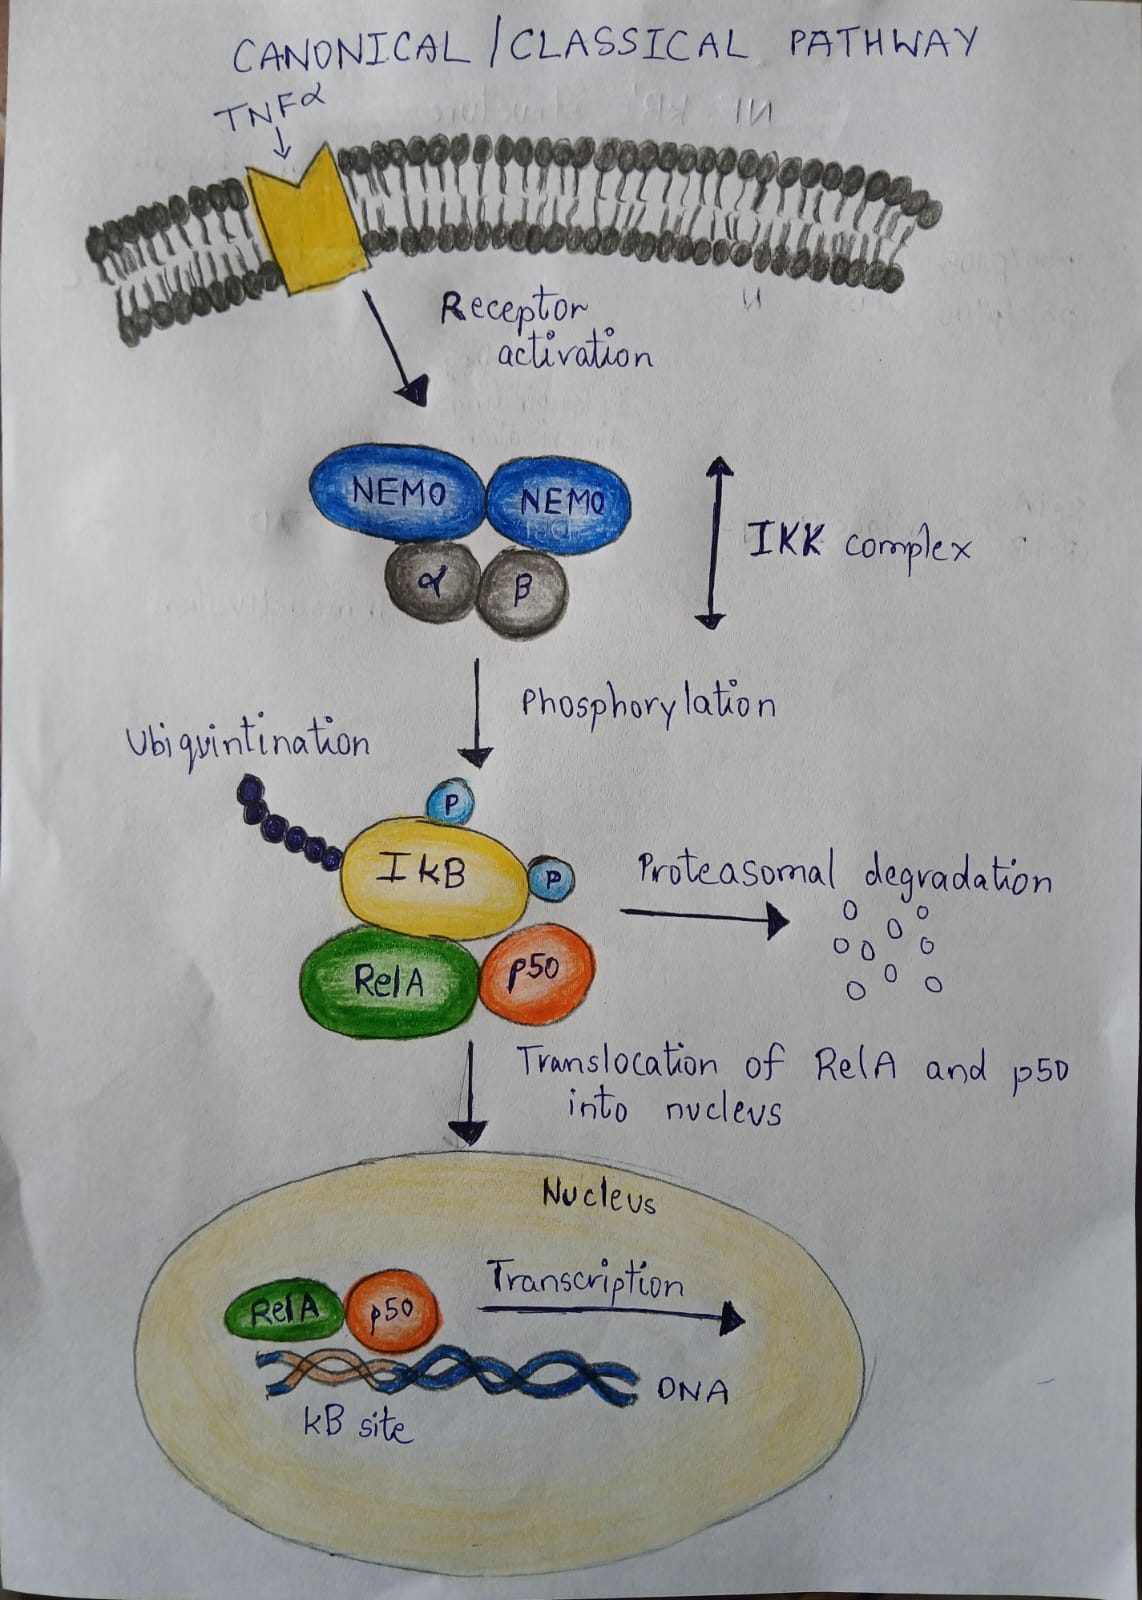 CANONICAL/CLASSICAL PATHWAY
TNFα
Receptor
activation
NEMO
NEMO
α
β
IKK complex
Phosphorylation
Ubiquintination
P
IkB
P
Proteasomal degradation
RelA
p50
Translocation of RelA and p50
into nucleus
Nucleus
Transcription
RelA
p50
DNA
kB site